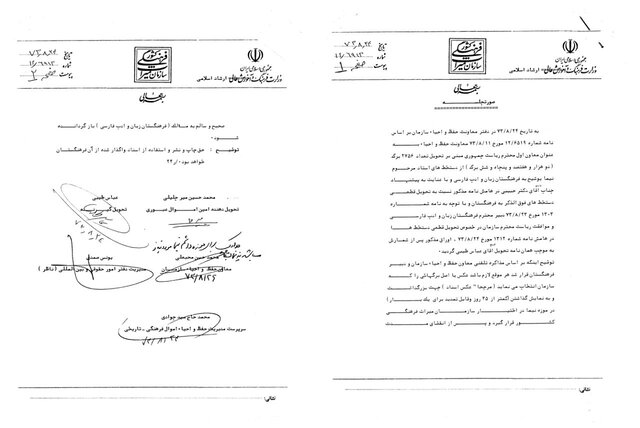 جمهوری اسلامی ایران
وزارت فرهنگ و آموزش عالی - ارشاد اسلامی
سازمان میراث فرهنگی کشور
تاریخ ۷۳,۸,۲۴
شماره
پیوست صفحه ۱
بسمه تعالی
صورتجلسه
به تاریخ ۷۳/۸/۲۴ در دفتر معاونت حفظ و احیاء بر اساس
نامه شماره ۱۲/۶۵۱۲ مورخ ۷۳/۸/۱۱ معاونت حفظ و احیاء به
عنوان معاون اول محترم ریاست جمهوری مبنی بر تحویل تعداد ۲۷۵۶ برگ
(دو هزار و هفتصد و پنجاه و شش برگ) از دستخط های استاد مرحوم
نیما یوشیج به فرهنگستان زبان و ادب فارسی و با عنایت به پیشنهاد
جناب آقای دکتر حبیبی در هامش نامه مذکور نسبت به تحویل قطعی
دستخط های فوق الذکر به فرهنگستان و با توجه به نامه شماره
۱۳۰۳ مورخ ۷۳/۸/۲۳ دبیر محترم فرهنگستان زبان و ادب فارسی
و موافقت ریاست محترم سازمان در خصوص تحویل قطعی دستخط ها
در هامش نامه شماره ۱۳۱۳ مورخ ۷۳/۸/۲۴ ، اوراق مذکور پس از شمارش
به موجب همان نامه تحویل آقای عباس طبیبی گردید
توضیح اینکه بر اساس مذاکره تلفنی معاون حفظ و احیاء سازمان و دبیر
فرهنگستان قرار شد هر موقع لازم باشد عکس یا اصل برگهائی را که
سازمان انتخاب می نماید (مرجحا" عکس اسناد) جهت بزرگداشت
و به نمایش گذاشتن (کمتر از ۲۵ روز وقابل تمدید برای یک بار)
در موزه نیما در اختیار سازمان میراث فرهنگی
کشور قرار گیرد و پس از انقضای مدت
نشانی:
جمهوری اسلامی ایران
وزارت فرهنگ و آموزش عالی - ارشاد اسلامی
سازمان میراث فرهنگی کشور
تاریخ ۷۳,۸,۲۴
شماره
پیوست صفحه ۲
بسمه تعالی
صحیح و سالم به مالک (فرهنگستان زبان و ادب فارسی) باز گردانده
شود.
توضیح : حق چاپ و نشر و استفاده از اسناد واگذار شده از آن فرهنگستان
خواهد بود.
محمد حسین میر جلیلی
تحویل دهنده امین اموال موزه
عباس طبیبی
تحویل گیرنده
۷۳,۸,۲۴
معاون حفظ و احیاء سازمان
۷۳/۸/۲۶
یونس صمدی
مدیریت دفتر امور حقوقی و بین المللی (ناظر)
محمد حاج سید جوادی
سرپرست مدیریت حفظ و احیاء اموال فرهنگی - تاریخی
۷۳/۸/۲۴
نشانی: